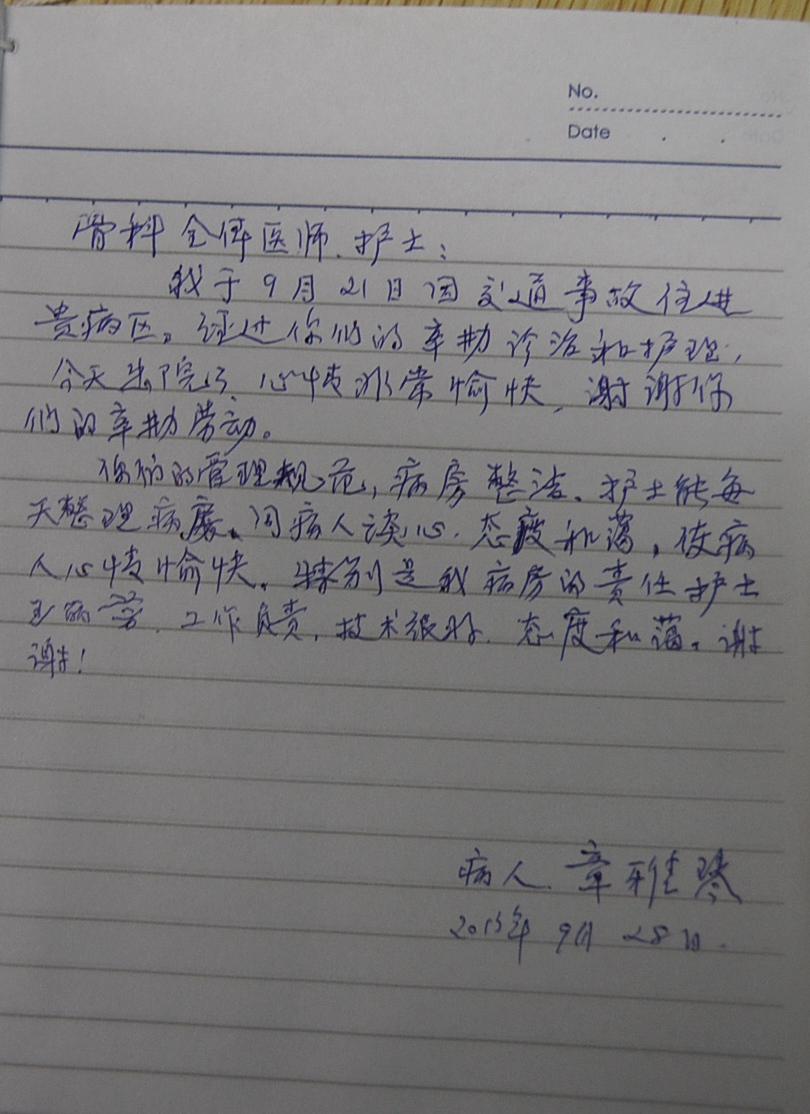 No.
Date . .
骨科全体医师、护士：
我于9月21日因交通事故住进
贵病区。经过你们的辛勤诊治和护理，
今天出院了 心情非常愉快，谢谢你
们的辛勤劳动。
你们的管理规范，病房整洁、护士能每
天整理病房、同病人谈心、态度和蔼，使病
人心情愉快。特别是我病房的责任护士
工作负责，技术很好、态度和蔼。谢
谢！
病人、章雅琴
年9月28日.